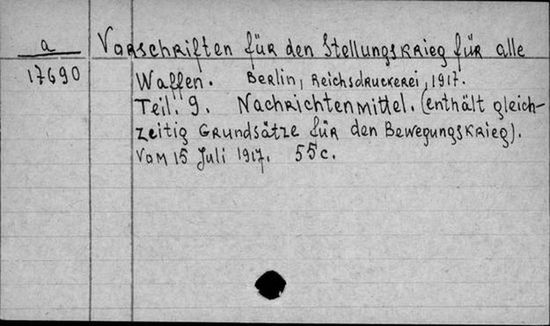 a
17690
Vorschriften für den Stellungskrieg für alle
Waffen. Berlin, Reichsdruckerei, 1917.
Teil. 9. Nachrichtenmittel. (enthält gleich-
zeitig Grundsätze für den Bewegungskrieg).
Vom 15 Juli 1917. 55c.